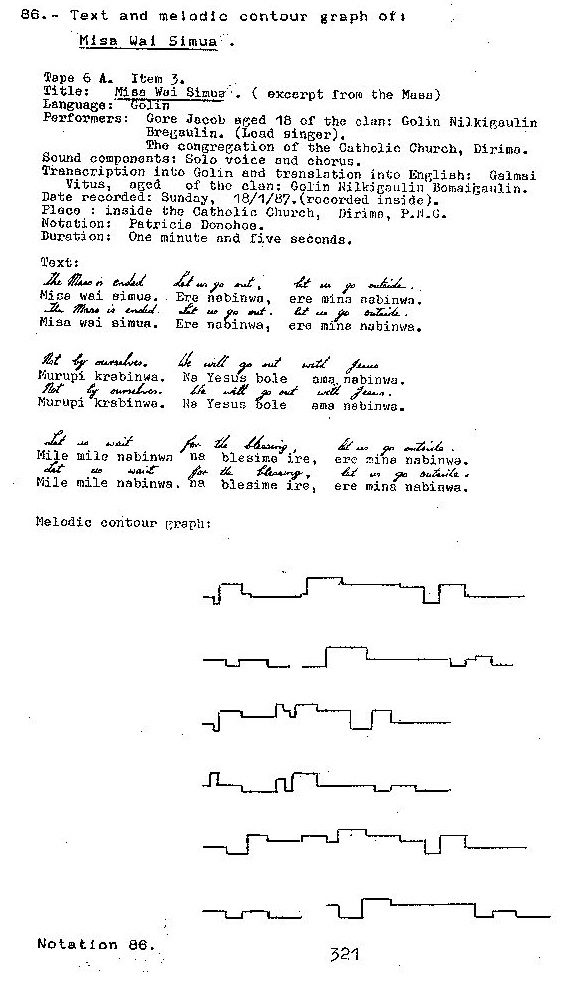 86.- Text and melodic contour graph of:
Misa Wai Simua .
Tape 6 A. Item 3.
Title: Misa Wai Simua . ( excerpt from the Mass)
Language: Golin
Performers: Gore Jacob aged 18 of the clan: Golin Nilkigaulin
Bregaulin. (Lead singer).
The congregation of the Catholic Church, Dirima.
Sound components: Solo voice and chorus.
Transcription into Golin and translation into English: Galmai
Vitus, aged of the clan: Golin Nilkigaulin Bomaigaulin.
Date recorded: Sunday, 18/1/87.(recorded inside).
Place : inside the Catholic Church, Dirima, P.N.G.
Notation: Patricia Donohoe.
Duration: One minute and five seconds.
Text:
The Mass is ended Let us go out, let us go outside.
Misa wai simua. Ere nabinwa, ere mina nabinwa.
The Mass is ended. Let us go out. let us go outside.
Misa wai simua. Ere nabinwa, ere mina nabinwa.
Not by ourselves. We will go out with Jesus
Murupi krabinwa. Na Yesus bole ama nabinwa.
Not by ourselves. We will go out with Jesus.
Murupi krabinwa. Na Yesus bole ama nabinwa.
Let us wait for the blessing, let us go outside.
Mile mile nabinwa na blesime ire, ere mina nabinwa.
Let us wait for the blessing, let us go outside.
Mile mile nabinwa. na blesime ire, ere mina nabinwa.
Melodic contour graph:
Notation 86.
321